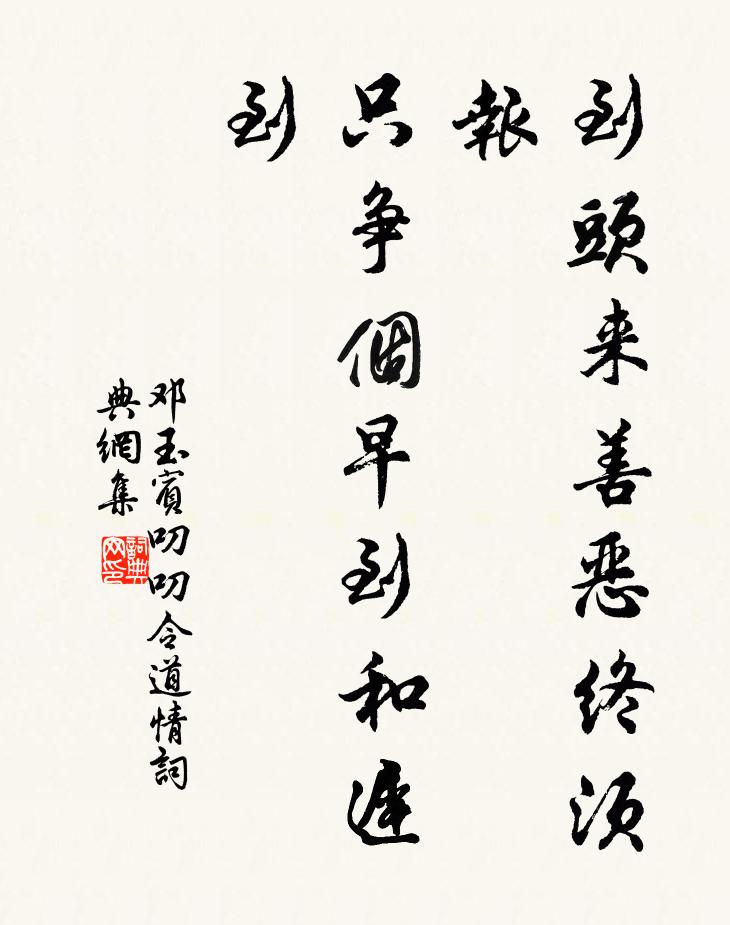 到頭来善恶終須
報
只争個早到和遲
到
邓玉賓叨叨令道情詞
典網集
詞典
网印